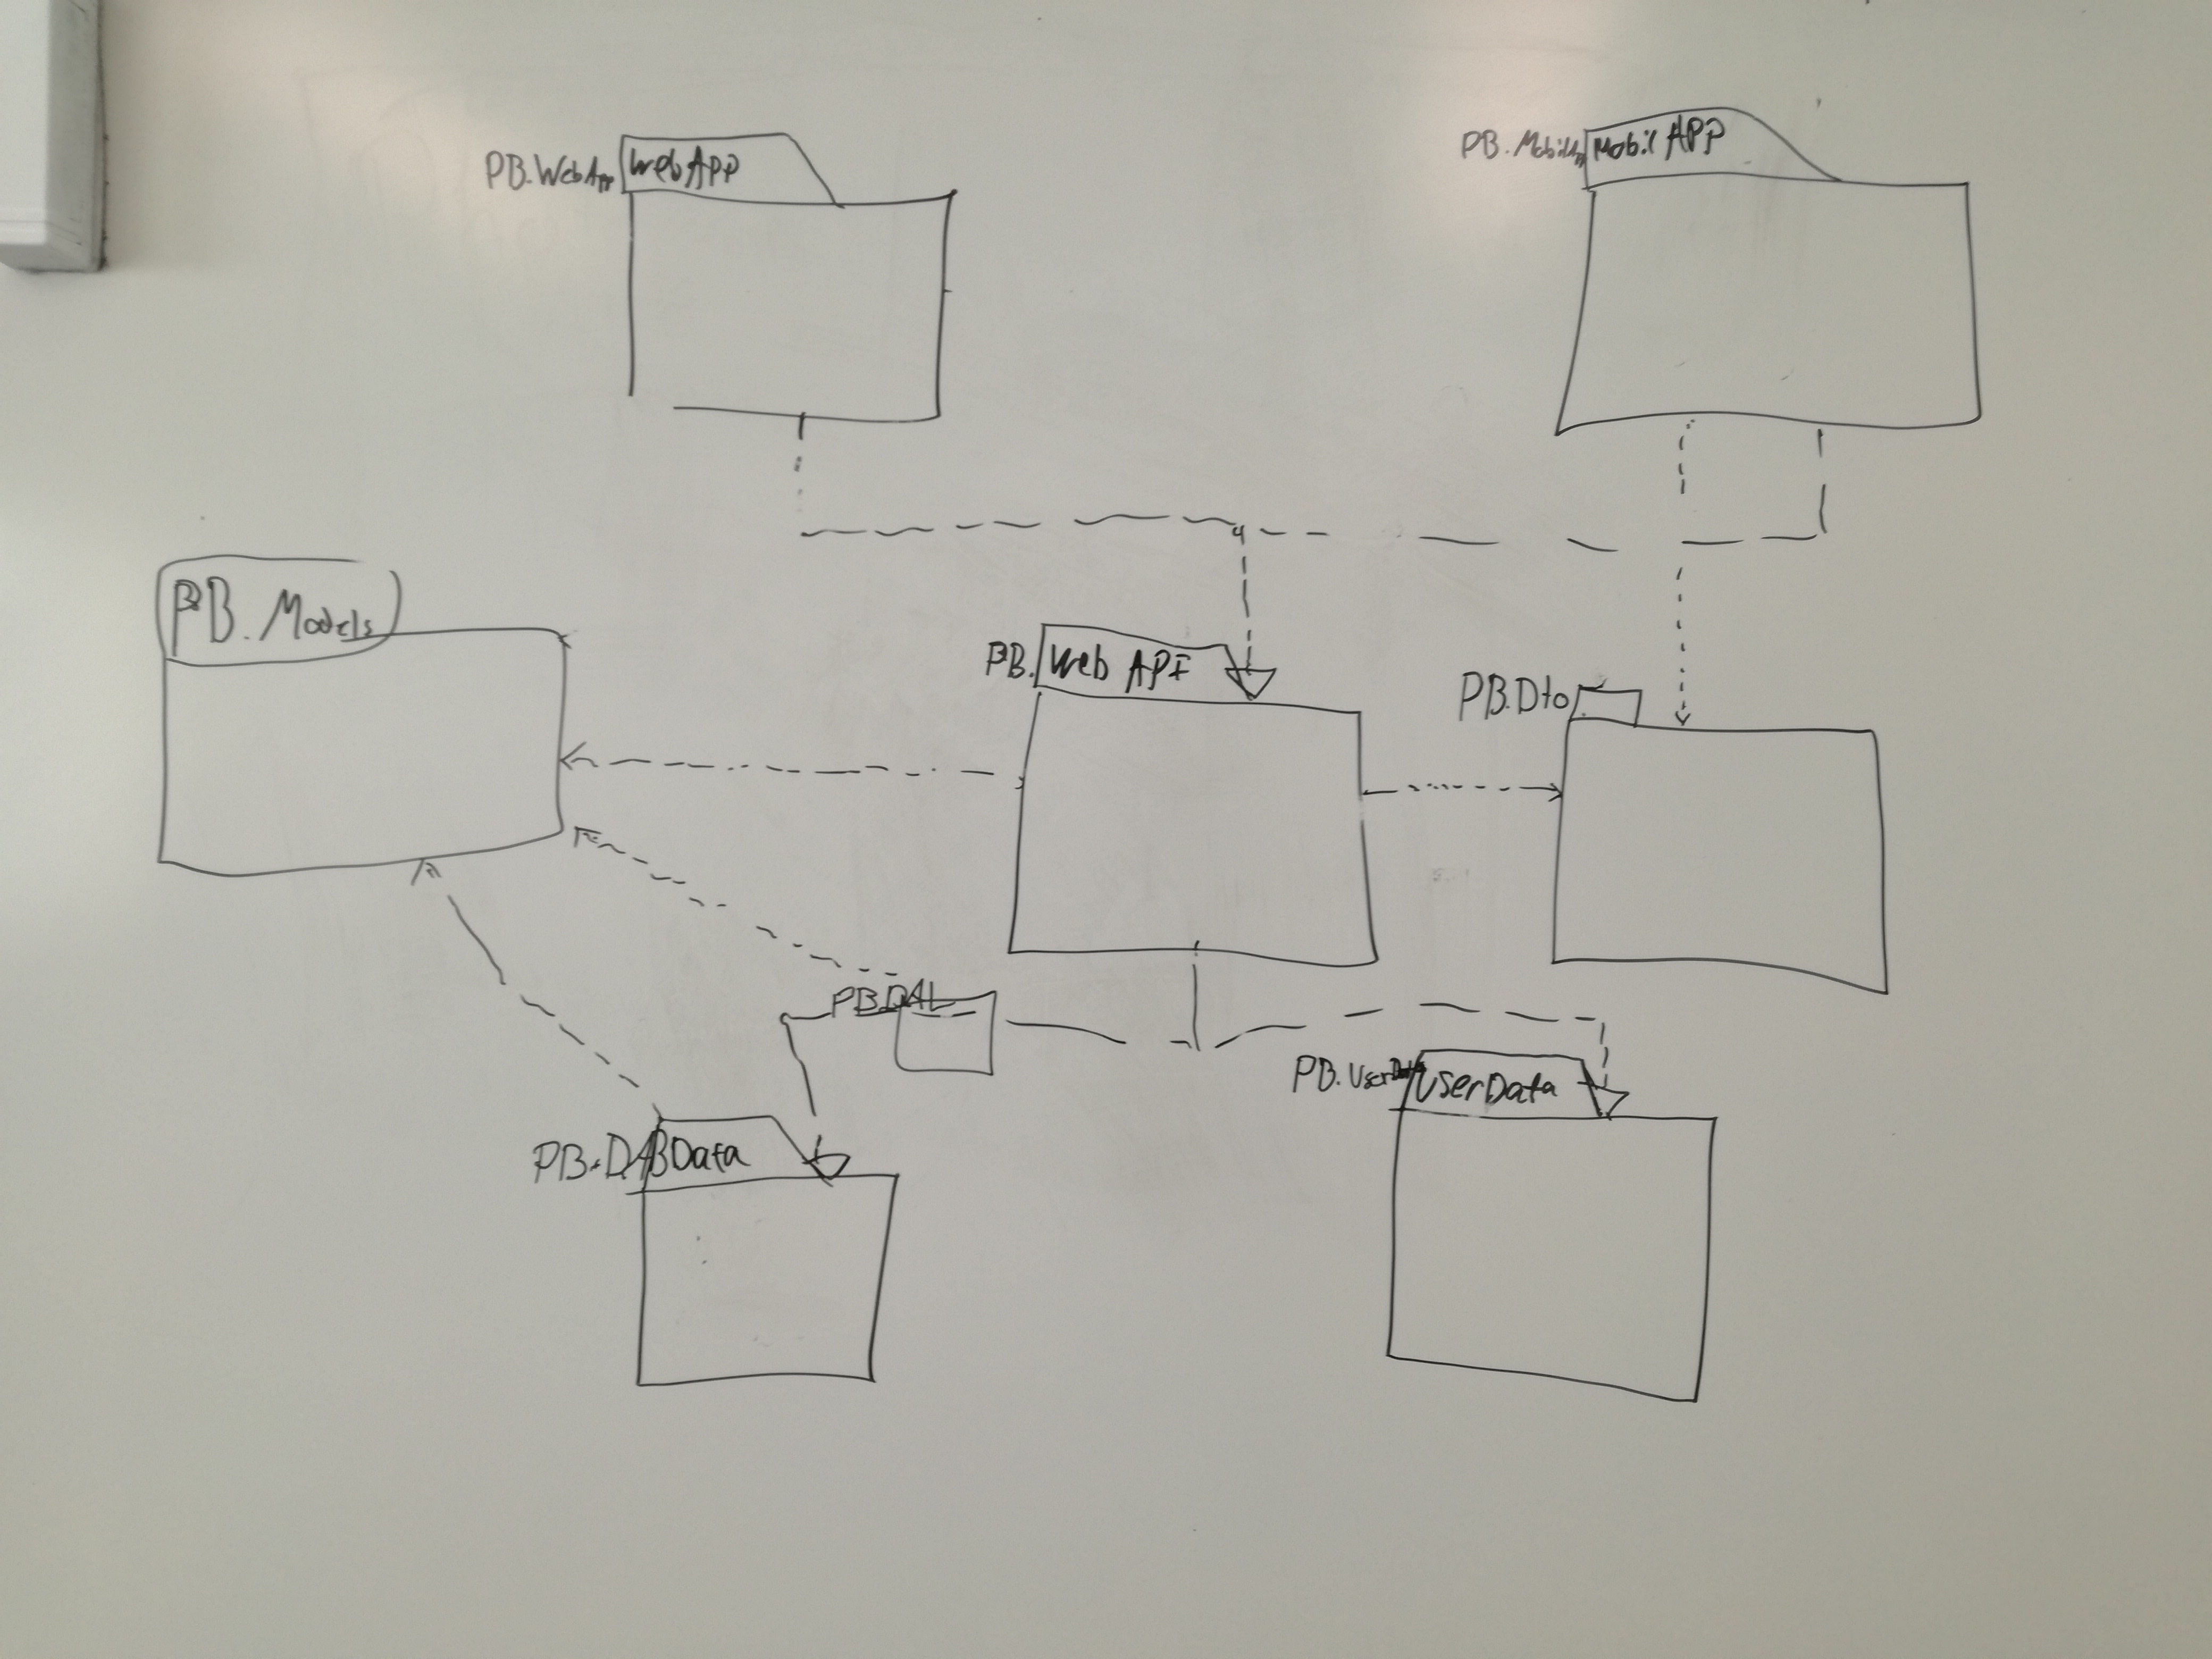 PB.WebApp WebApp
PB.MobilApp Mobil APP
PB. Models
PB. Web API
PB.Dto
PB.DAL
PB.UserData UserData
PB.DABData